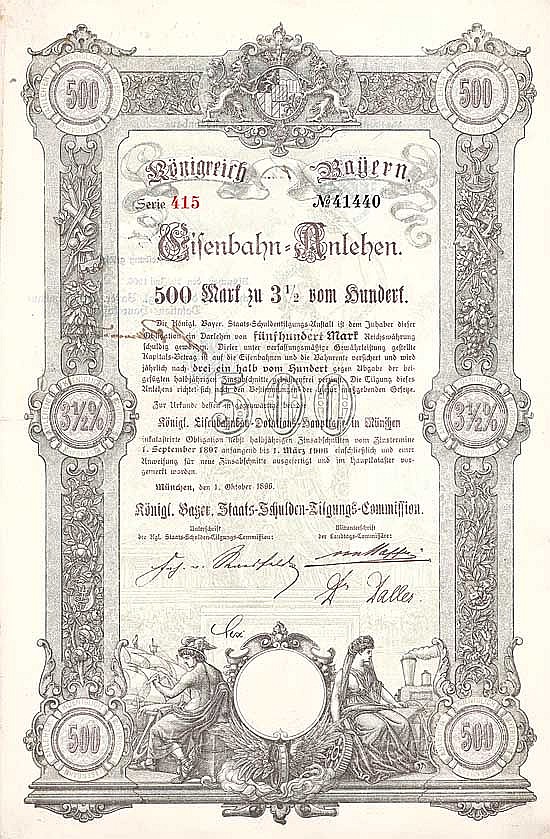 500 500
Königreich Bayern.
Serie 415 № 41440
Eisenbahn-Anlehen.
500 Mark zu 3½ vom Hundert.
Die Königl. Bayer. Staats-Schuldentilgungs-Anstalt ist dem Inhaber dieser
Obligation ein Darlehen von fünfhundert Mark Reichswährung
schuldig geworden. Dieser unter verfassungsmäßige Gewährleistung gestellte
Kapitals-Betrag ist auf die Eisenbahnen und die Bahnrente versichert und wird
jährlich nach drei ein halb vom Hundert gegen Abgabe der bei-
gefügten halbjährigen Zinsabschnitte gebührenfrei verzinst. Die Tilgung dieses
Anlehens richtet sich nach den Bestimmungen der hiefür maßgebenden Gesetze.
500
3½% 3½%
Zur Urkunde dessen ist gegenwärtige bei der
Königl. Eisenbahnbau-Dotations-Hauptkasse in München
inkatastrirte Obligation nebst halbjährigen Zinsabschnitten vom Zinstermine
1. September 1897 anfangend bis 1. März 1906 einschließlich und einer
Anweisung für neue Zinsabschnitte ausgefertigt und im Hauptkataster vor-
gemerkt worden.
München, den 1. Oktober 1896.
Königl. Bayer. Staats-Schulden-Tilgungs-Commission.
Unterschrift Mitunterschrift
der Kgl. Staats-Schulden-Tilgungs-Commission: der Landtags-Commissäre:
Dr Daller
500 500